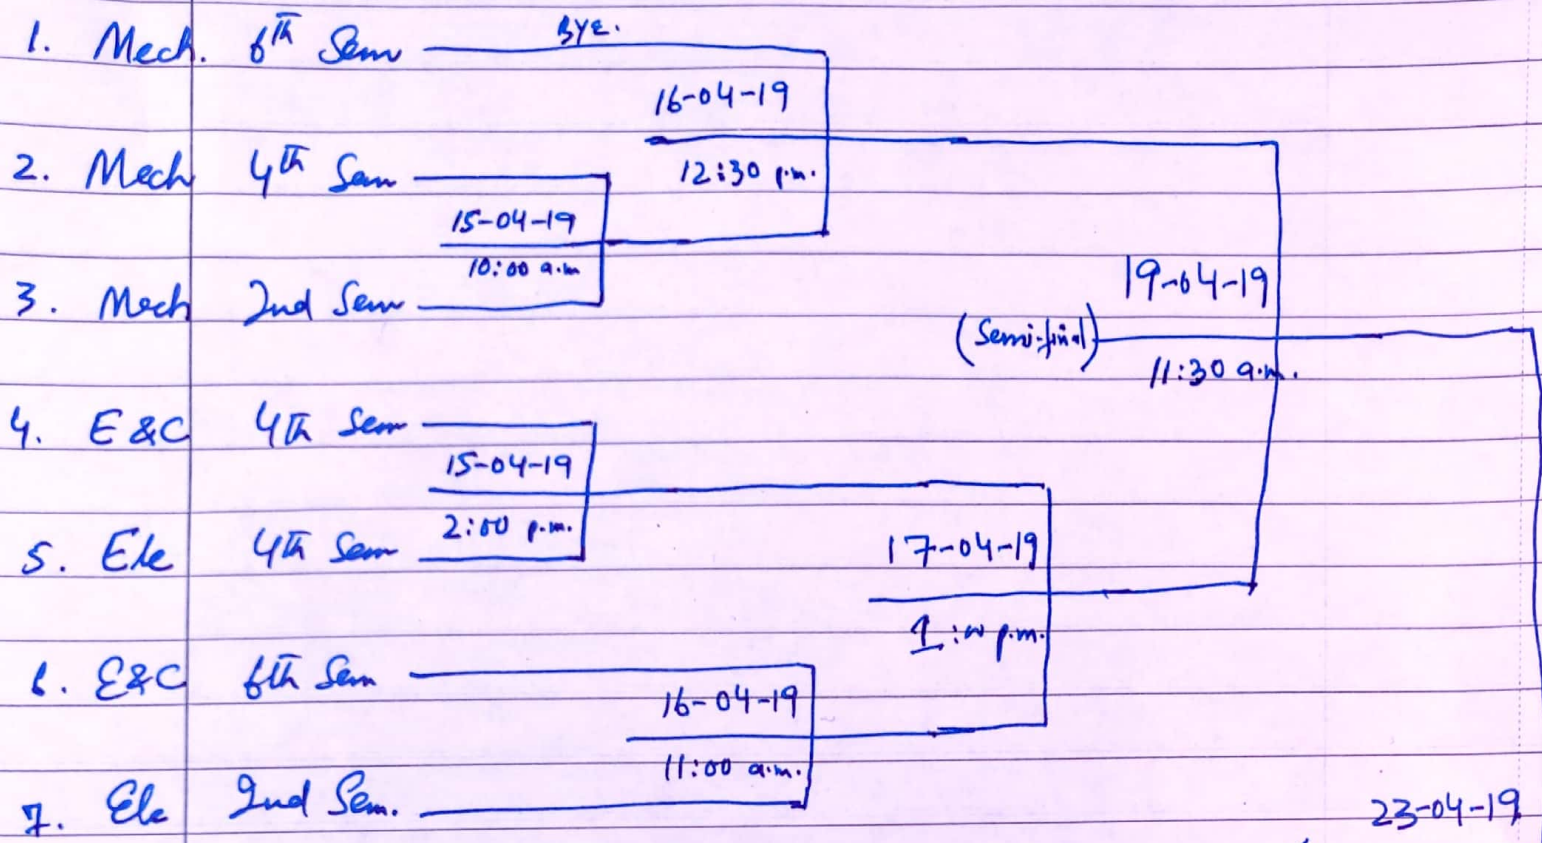 Bye.
1. Mech. 6th Sem
16-04-19
12:30 p.m.
2. Mech 4th Sem
15-04-19
10:00 a.m
3. Mech 2nd Sem
19-04-19
(Semi-final)
11:30 a.m.
4. E&C 4th Sem
15-04-19
2:00 p.m.
5. Ele 4th Sem
17-04-19
1:00 p.m.
6. E&C 6th Sem
16-04-19
11:00 a.m.
7. Ele 2nd Sem.
23-04-19